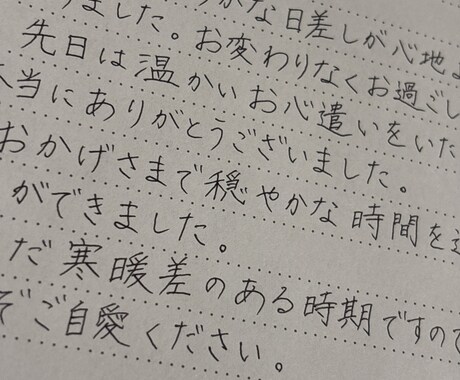 りました。 かな日差しが心地よ
りました。お変わりなくお過ごし
先日は温かいお心遣いをいた
本当にありがとうございました。
おかげさまで穏やかな時間を過
ができました。
だ寒暖差のある時期ですので
ぞご自愛ください。